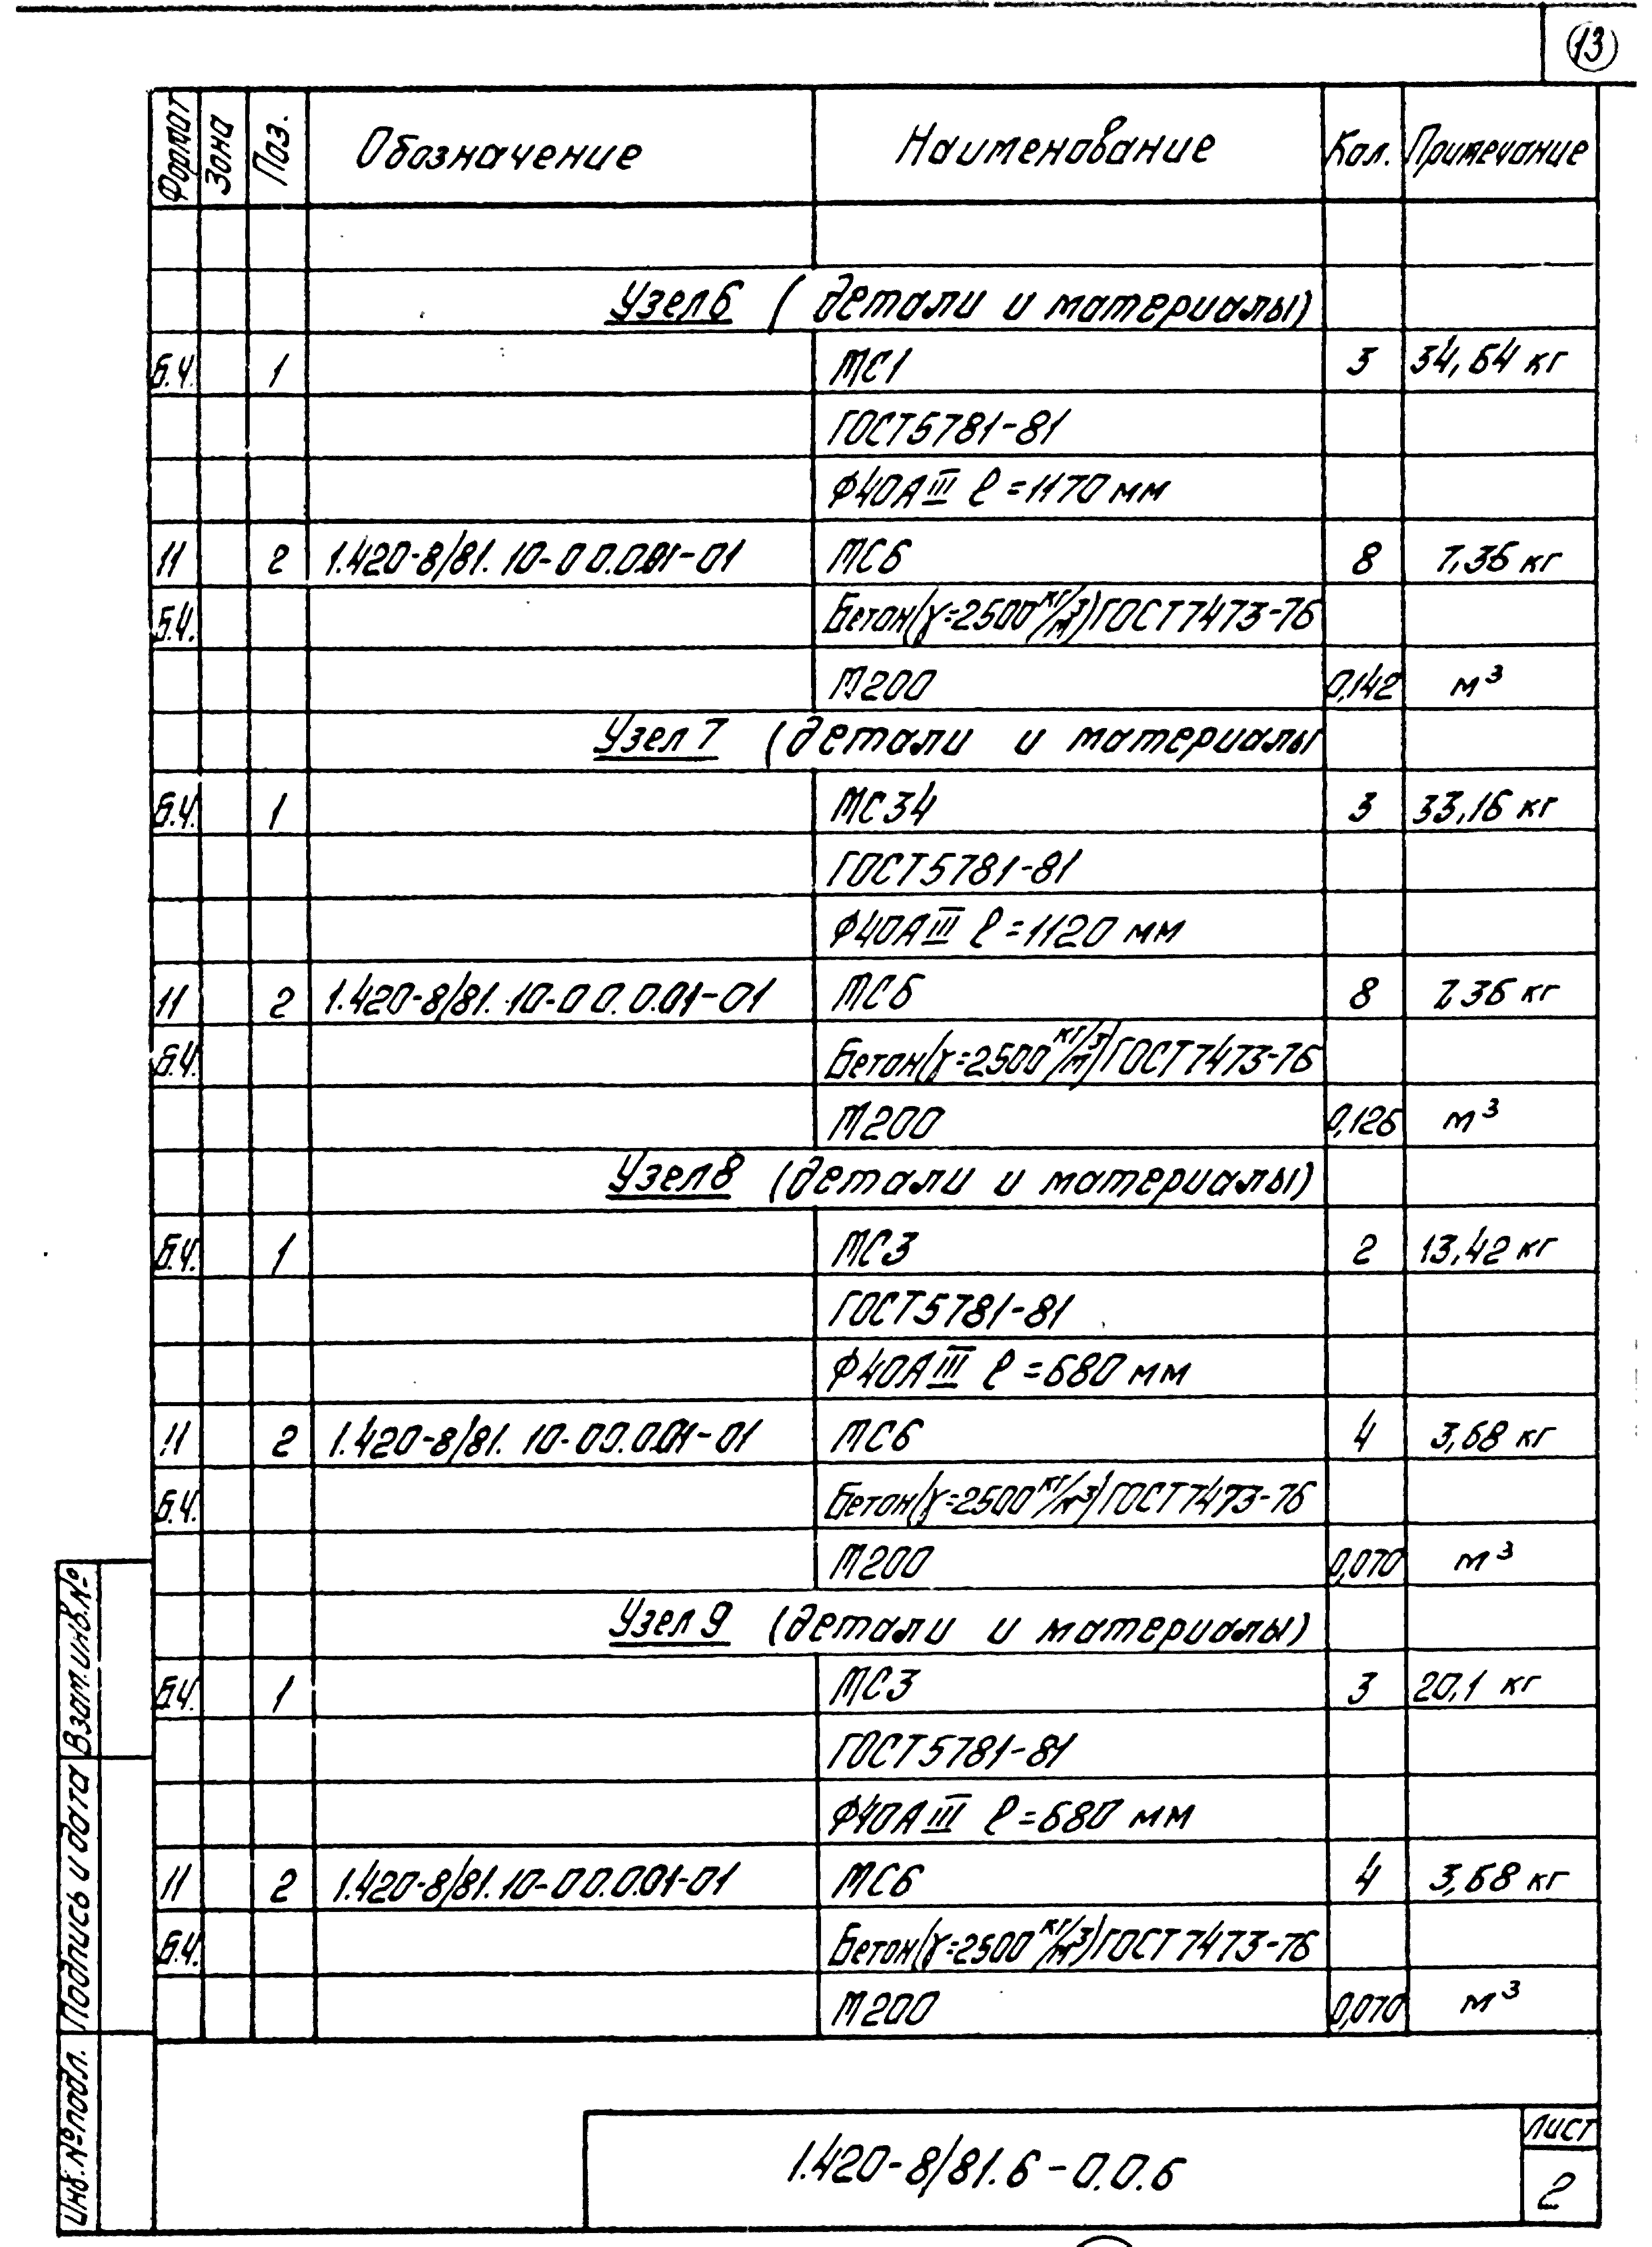 13
Формат Зона Поз. Обозначение Наименование Кол. Примечание
Узел 6 (детали и материалы)
Б.Ч. 1 МС1 3 34,64 кг
ГОСТ 5781-81
Ф40АIII ℓ=1170 мм
11 2 1.420-8/81.10-00.0.01-01 МС6 8 7,36 кг
Б.Ч. Бетон (γ=2500 кг/м³) ГОСТ 7473-76
М200 0,142 м³
Узел 7 (детали и материалы
Б.Ч. 1 МС34 3 33,16 кг
ГОСТ 5781-81
Ф40АIII ℓ=1120 мм
11 2 1.420-8/81.10-00.0.01-01 МС6 8 7,36 кг
Б.Ч. Бетон (γ=2500 кг/м³) ГОСТ 7473-76
М200 0,126 м³
Узел 8 (детали и материалы)
Б.Ч. 1 МС3 2 13,42 кг
ГОСТ 5781-81
Ф40АIII ℓ=680 мм
11 2 1.420-8/81.10-00.0.01-01 МС6 4 3,68 кг
Б.Ч. Бетон (γ=2500 кг/м³) ГОСТ 7473-76
М200 0,070 м³
Узел 9 (детали и материалы)
Б.Ч. 1 МС3 3 20,1 кг
ГОСТ 5781-81
Ф40АIII ℓ=680 мм
11 2 1.420-8/81.10-00.0.01-01 МС6 4 3,68 кг
Б.Ч. Бетон (γ=2500 кг/м³) ГОСТ 7473-76
М200 0,070 м³
Взам.инв.№
Подпись и дата
Инв.№ подл.
1.420-8/81.6-0.0.6
Лист
2